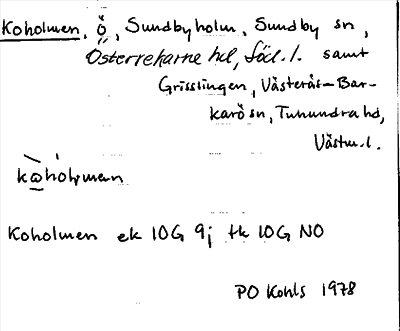 Koholmen, ö, Sundbyholm, Sundby sn,
Österrekarne hd, Söd. l. samt
Grisslingen, Västerås-Bar-
karö sn, Tuhundra hd,
Västm. l.
Koholmen ek 10G 9j tk 10G NO
PO Kohls 1978